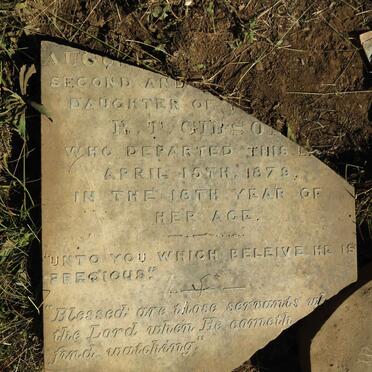 SECOND AND
DAUGHTER OF
GIBSO
WHO DEPARTED THIS
APRIL 15TH, 1879,
IN THE 18TH YEAR OF
HER AGE.
"UNTO YOU WHICH BELEIVE HE IS
PRECIOUS."
"Blessed are those servants
the Lord when He cometh
find watching."